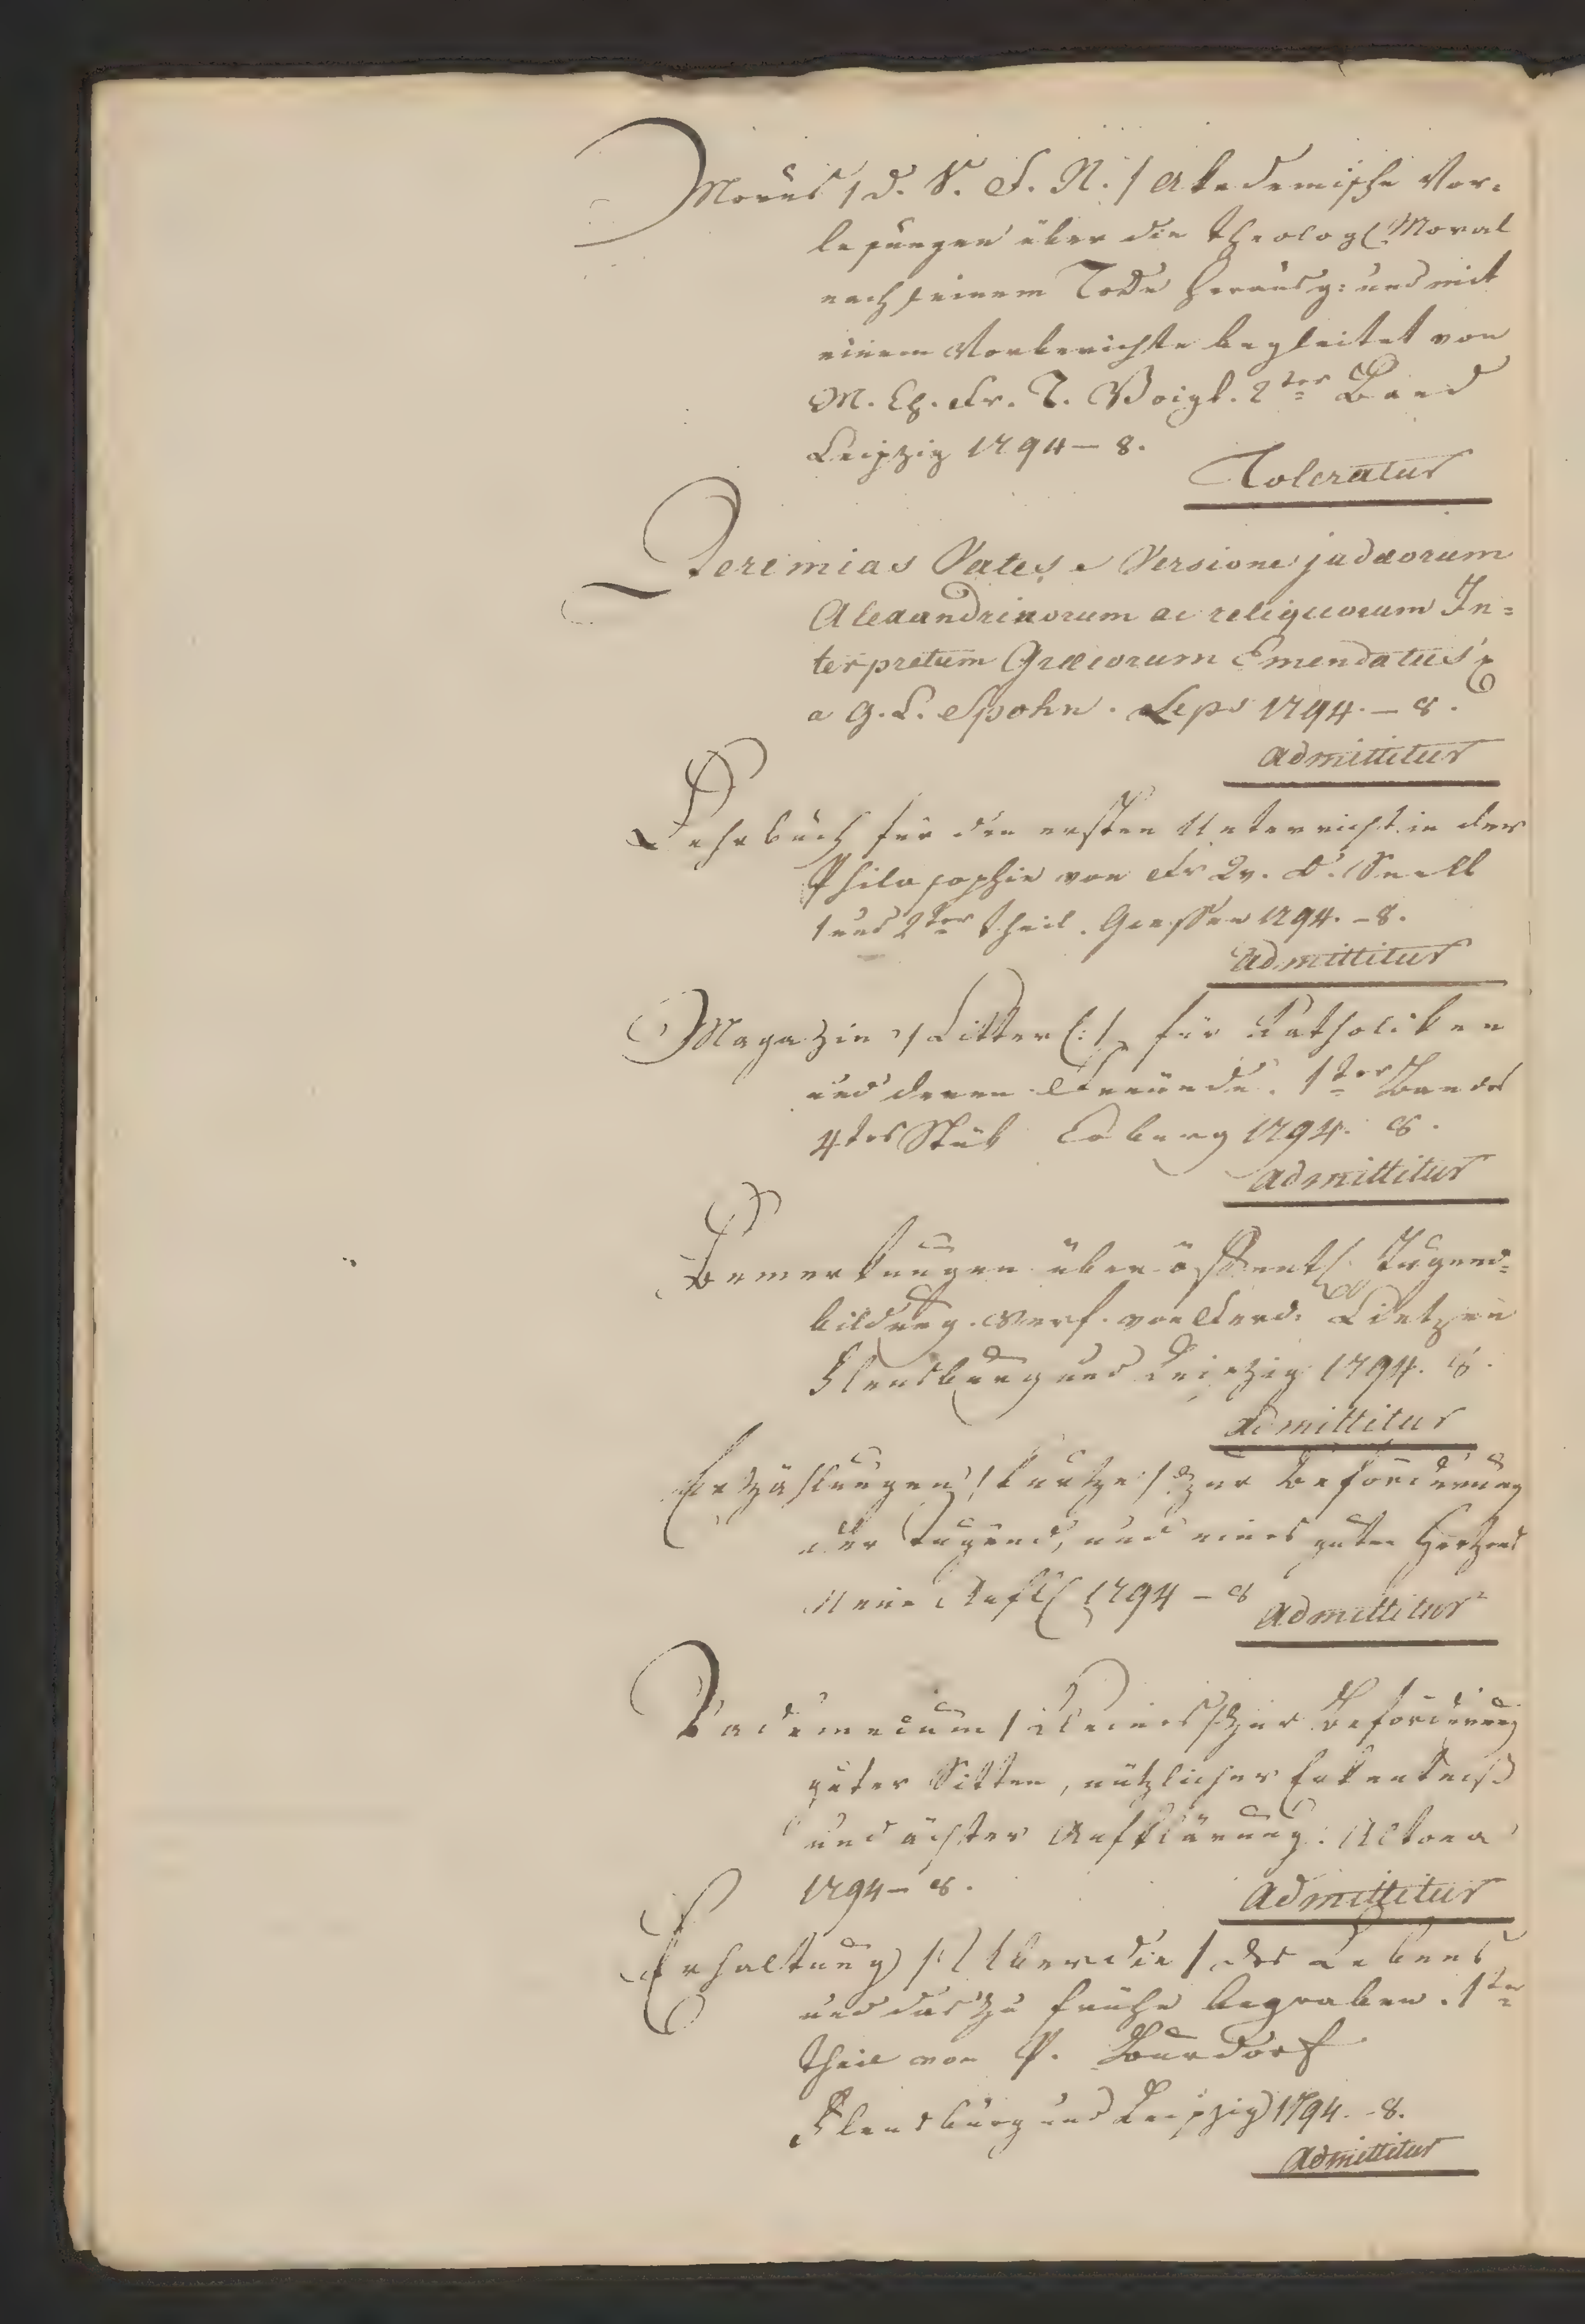 Morus / D. S. F. N. / Akademische Vor-
lesungen über die theologl: Moral
nach seinem Tode herausg: und mit
einem Vorberichte begleitet von
M. Ch. Fr. T. Voigt. 2ter Band
Leipzig 1794 – 8.
Toleratur
Jeremias Vates e Versione judæorum
Alexandrinorum ac reliquorum In=
terpretum Græcorum Emendatus
a G. L. Spohn. Leps 1794. – 8.
admittitur
Lehrbuch für den ersten Unterricht in der
Philosophie von Fr W. D. Snell
1 und 2ter Theil. Giessen 1794. – 8.
admittitur
Magazin / Litter: / für Katholiken
und deren Freünde. 1ter Bandes
4tes Stük Coburg 1794. 8.
admittitur
Bemerkungen über öffentl. Jugend=
bildung. Verf. von Ferd.
Flensburg und Leipzig 1794. 8.
admittitur
Erzählungen / kurtze / zur Beförderung
der Tugend, und eines guten Hertzens
Neue Aufl 1794 – 8
admittitur
Vademecum / Kleines / zur Beförderung
guter Sitten, nützlicher Erkentniß
und ächter Aufklärung. Altona
1794 – 8.
Admittitur
Erhaltung / Uber die / des Lebens
und das zu frühe begraben. 1ter
Theil von P. Burdorf
Flensburg und Leipzig 1794. – 8.
Admittitur